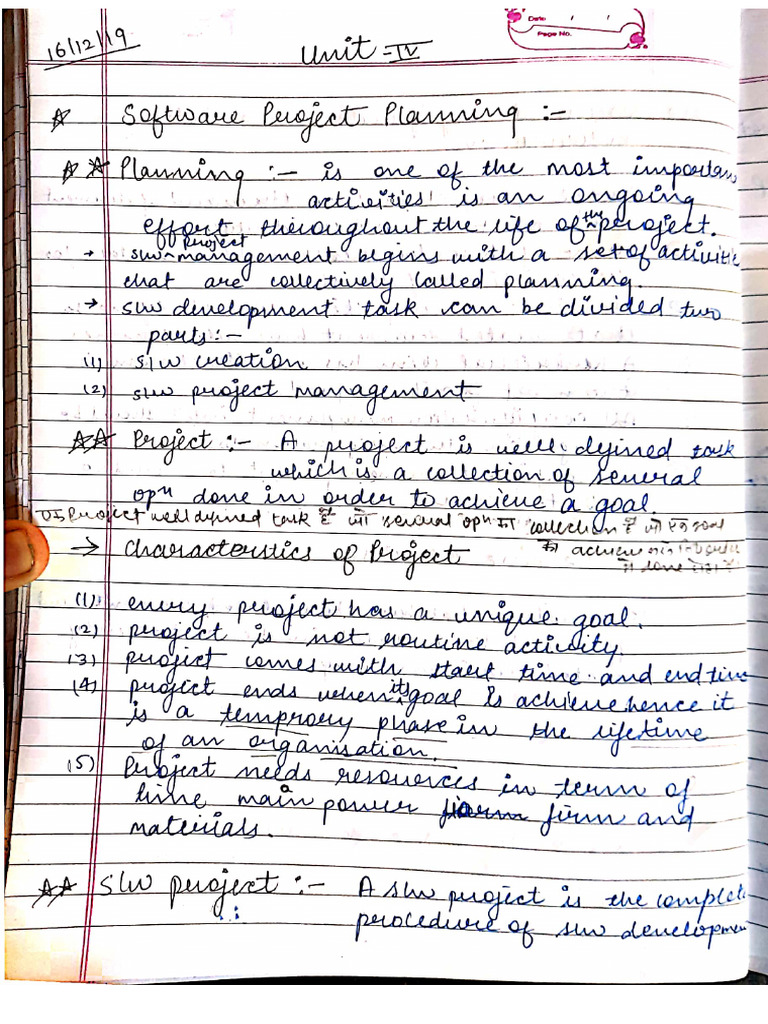 Date / /
Page No.
16/12/19
Unit-IV
Software Project Planning :-
Planning :- is one of the most important
activities is an ongoing
effort throughout the life of the project.
→ s/w project management begins with a set of activitie
that are collectively called planning.
→ s/w development task can be divided two
parts:-
(1) s/w creation
(2) s/w project management
Project :- A project is well defined task
which is a collection of several
opn done in order to achieve a goal.
एक Project well defined task है जो several opn का collection है जो एक goal
को achieve करने के लिए
में done होता है
→ Characteristics of Project
(1) every project has a unique goal.
(2) project is not routine activity.
(3) project comes with start time and end time
(4) project ends when its goal is achieve hence it
is a temprory phase in the lifetime
of an organisation.
(5) Project needs resources in term of
time main power firm and
materials.
S/W project :- A s/w project is the complete
procedure of s/w development